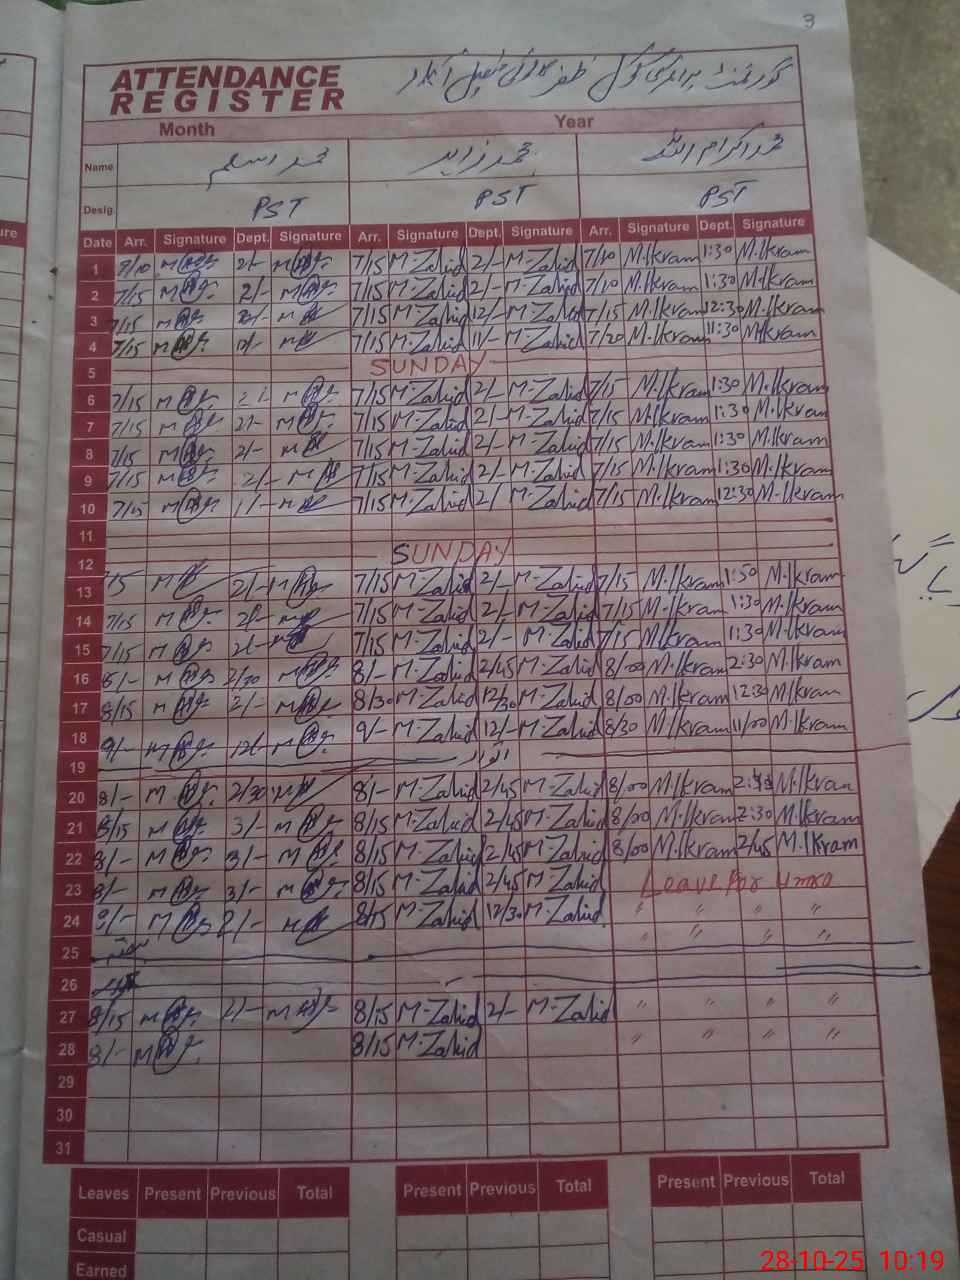 3
ATTENDANCE
REGISTER
گورنمنٹ پرائمری سکول
Month Year
Name محمد اسلم محمد زاہد محمد اکرام اللہ
Desig. PST PST PST
Date Arr. Signature Dept. Signature Arr. Signature Dept. Signature Arr. Signature Dept. Signature
1 7/10 2/- 7/15 M-Zahid 2/- M-Zahid 7/10 M.Ikram 1:30 M.Ikram
2 7/15 2/- 7/15 M-Zahid 2/- M-Zahid 7/10 M.Ikram 1:30 M.Ikram
3 7/15 7/15 M-Zahid 12/- M-Zahid 7/15 M.Ikram 12:30 M.Ikram
4 7/15 7/15 M-Zahid 11/- M-Zahid 7/20 M.Ikram 11:30 M.Ikram
5 SUNDAY
6 7/15 7/15 M-Zahid 2/- M-Zahid 7/15 M.Ikram 1:30 M.Ikram
7 7/15 2/- 7/15 M-Zahid 2/- M-Zahid 7/15 M.Ikram 1:30 M.Ikram
8 7/15 2/- 7/15 M-Zahid 2/- M-Zahid 7/15 M.Ikram 1:30 M.Ikram
9 7/15 2/- 7/15 M-Zahid 2/- M-Zahid 7/15 M.Ikram 1:30 M.Ikram
10 7/15 1/- 7/15 M-Zahid 2/ M-Zahid 7/15 M.Ikram 12:30 M.Ikram
11
12 SUNDAY
13 7/15 2/- 7/15 M-Zahid 2/- M-Zahid 7/15 M.Ikram 1:50 M.Ikram
14 7/15 2/- 7/15 M-Zahid 2/- M-Zahid 7/15 M.Ikram 1:30 M.Ikram
15 7/15 2/- 7/15 M-Zahid 2/- M-Zahid 7/15 M.Ikram 1:30 M.Ikram
16 8/- 2/30 8/- M-Zahid 2/45 M-Zahid 8/00 M.Ikram 2:30 M.Ikram
17 8/15 2/- 8/30 M-Zahid 12/30 M-Zahid 8/00 M.Ikram 12:30 M.Ikram
18 9/- 12/- 9/- M-Zahid 12/- M-Zahid 8/30 M.Ikram 11/00 M.Ikram
19 اتوار
20 8/- 2/30 8/- M-Zahid 2/45 M-Zahid 8/00 M.Ikram M.Ikram
21 8/15 3/- 8/15 M-Zahid 2/45 M-Zahid 8/00 M.Ikram 2:30 M.Ikram
22 8/- 3/- 8/15 M-Zahid 2/45 M-Zahid 8/00 M.Ikram 2/45 M.Ikram
23 8/- 3/- 8/15 M-Zahid 2/45 M-Zahid Leave for Umra
24 8/- 2/- 8/15 M-Zahid 12/30 M-Zahid " " " "
25 ہفتہ " " " "
26 اتوار
27 8/15 2/- 8/15 M-Zahid 2/- M-Zahid " " " "
28 8/- 8/15 M-Zahid " " " "
29
30
31
Leaves Present Previous Total Present Previous Total Present Previous Total
Casual
Earned
28-10-25 10:19